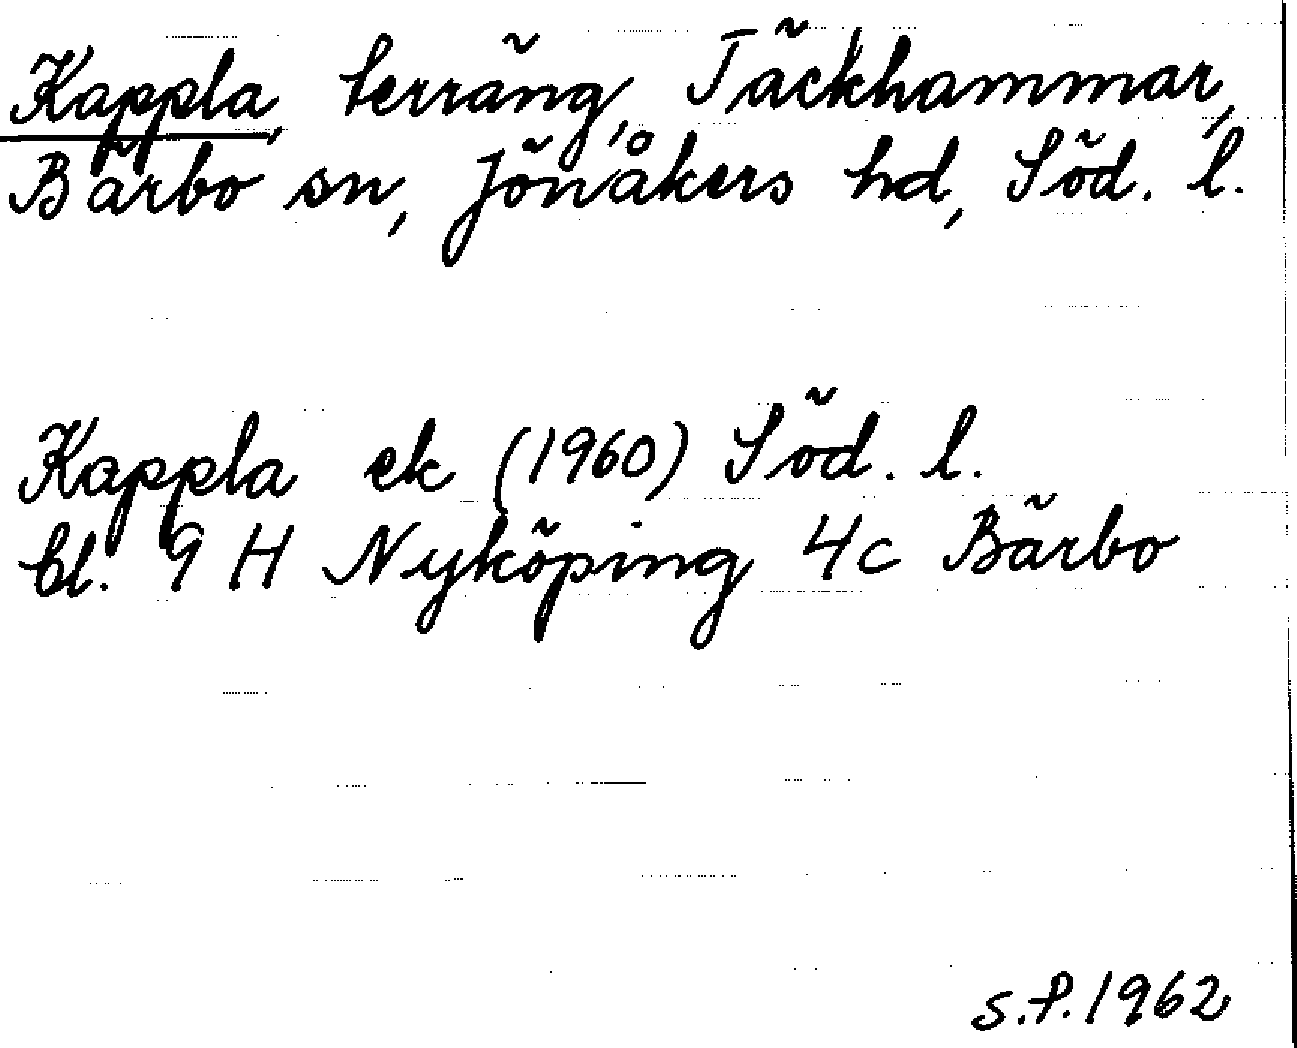 Kappla, terräng, Täckhammar,
Bärbo sn, Jönåkers hd, Söd. l.
Kappla ek (1960) Söd. l.
bl. 9 H Nyköping 4c Bärbo
S.P. 1962